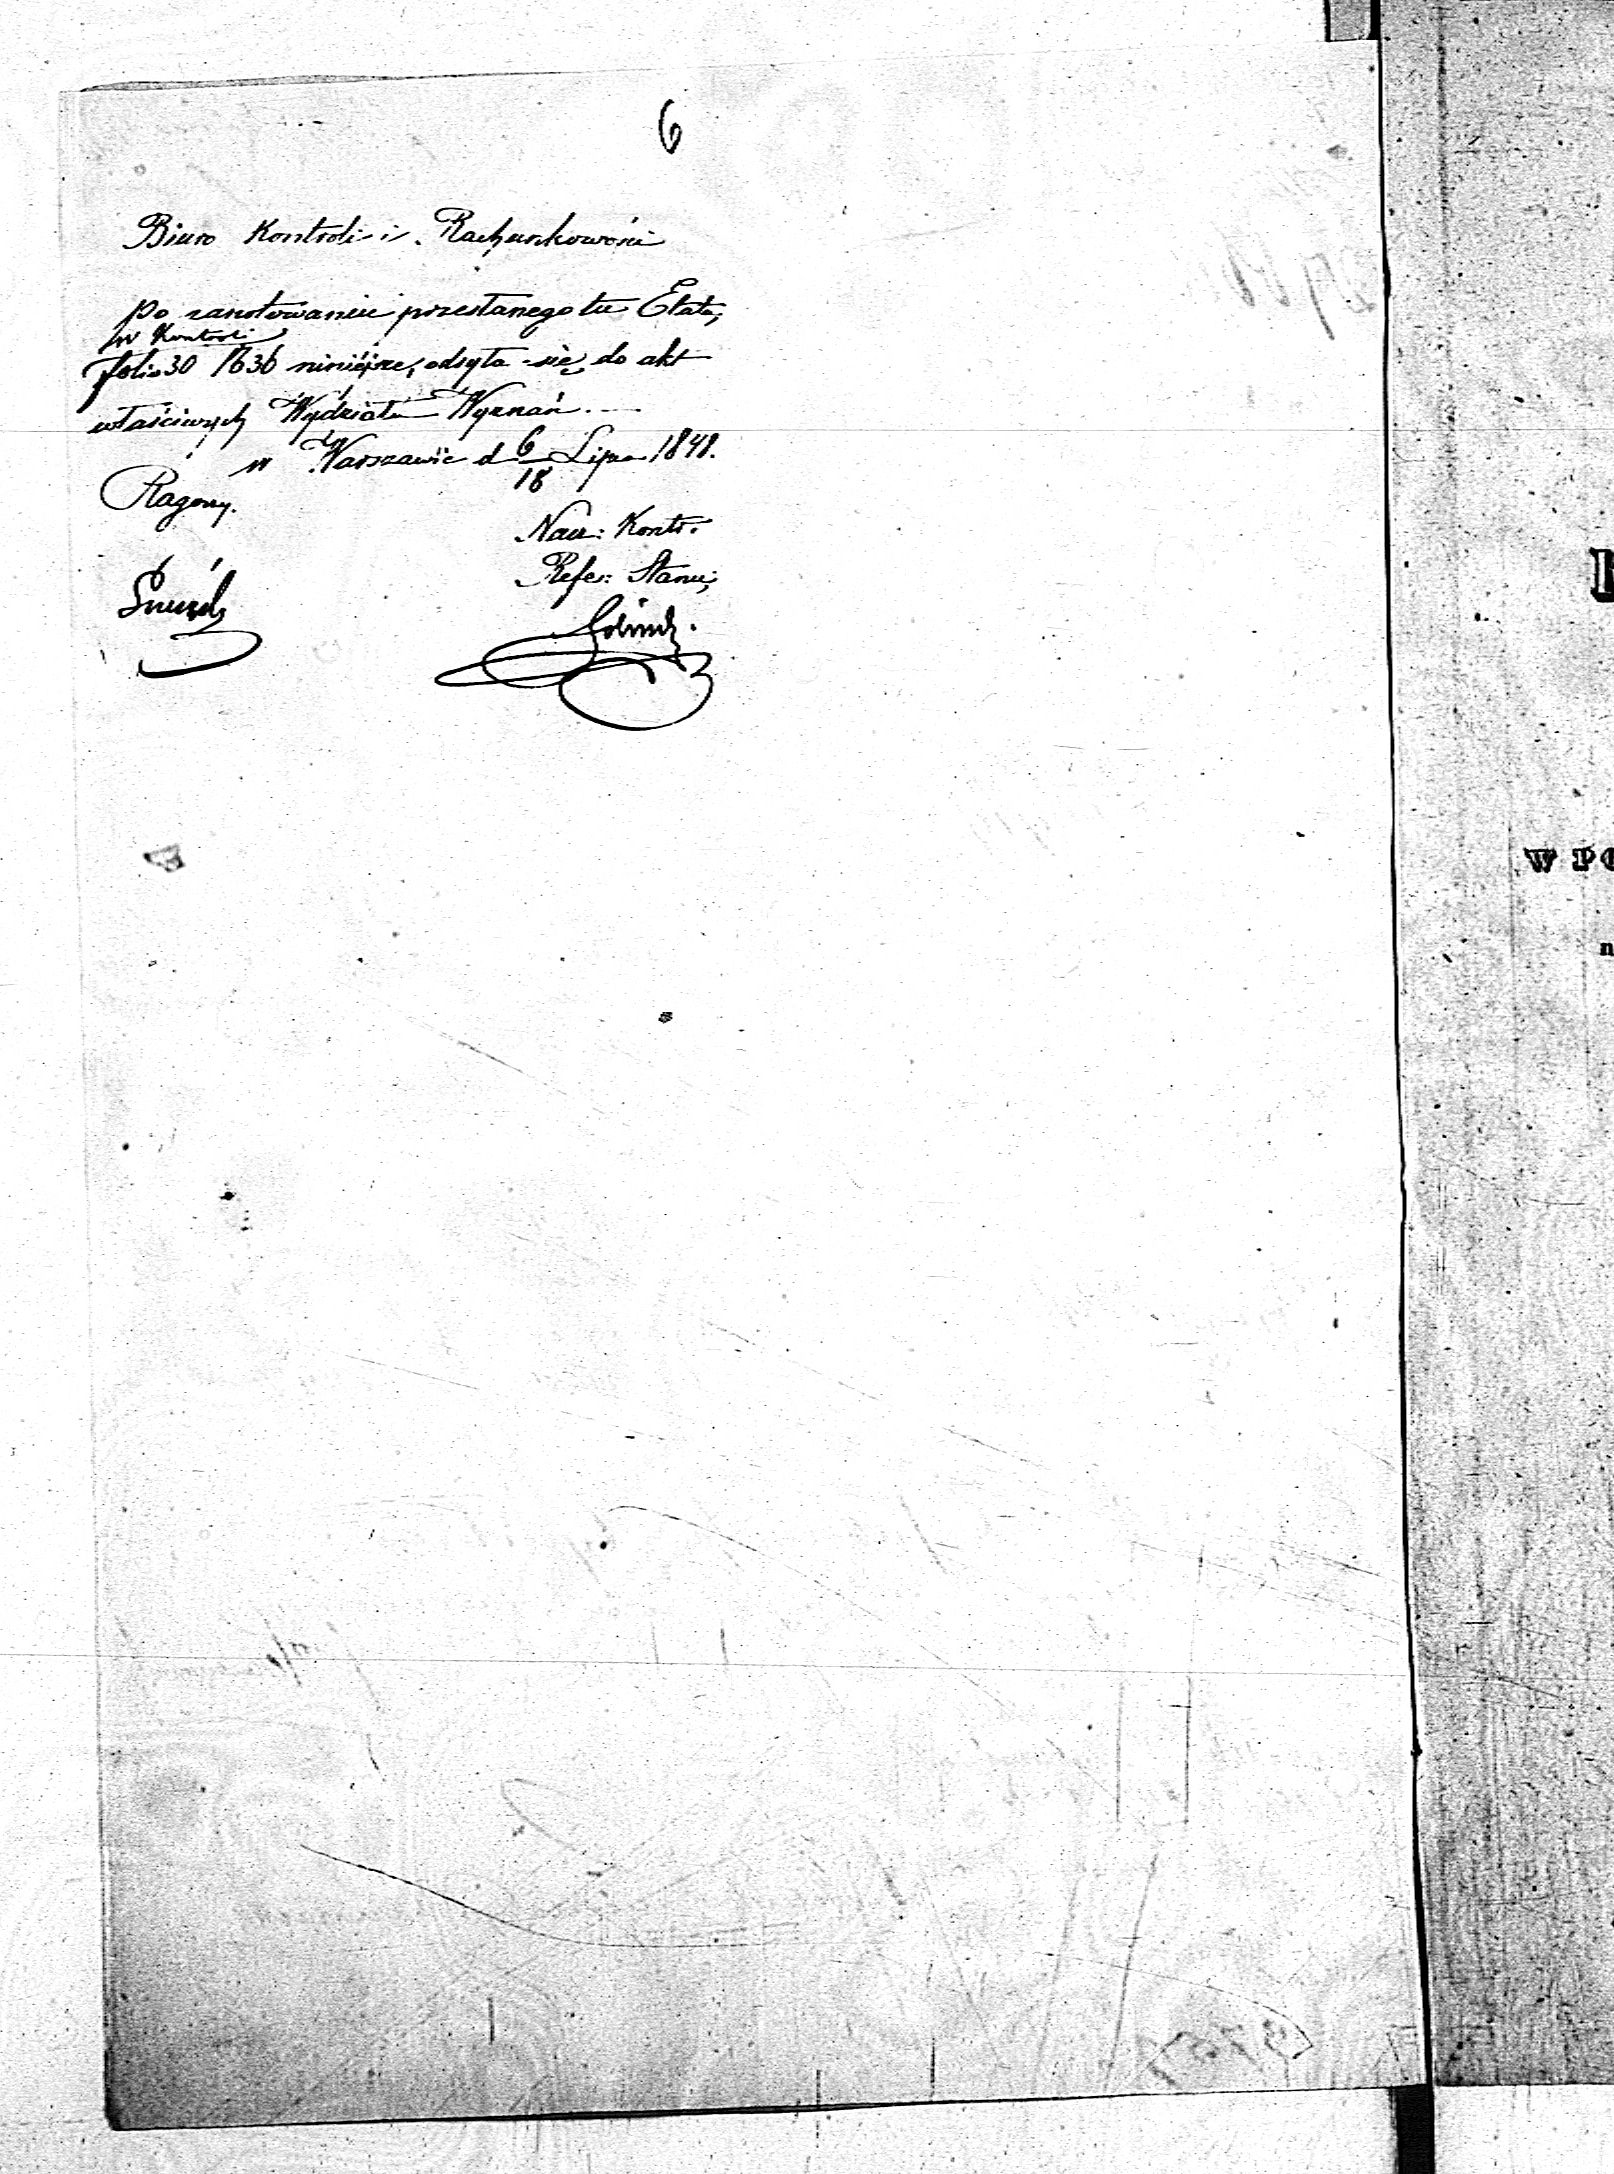 6
Biuro Kontroli i Rachunkowości
po zanotowaniu przesłanego tu Etatu,
w Kontroli
folio 30 1636 niniejsze, odsyła się do akt
właściwych Wydziału Wyznań.
w Warszawie d 6/18 Lipca 1848.
Nacz: Kontr.
Refer: Stanu,
W PO